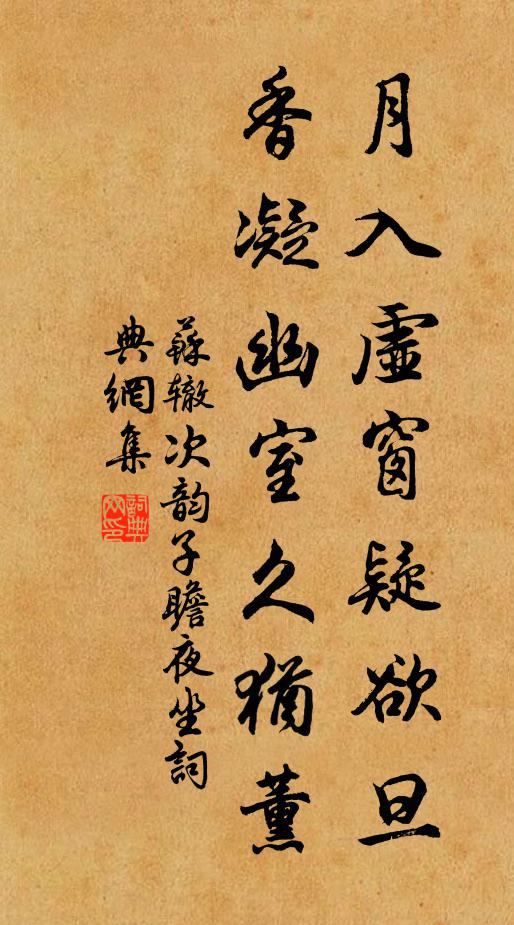 月入虛窗疑欲旦
香凝幽室久猶薰
蘇辙次韵子瞻夜坐詞
典網集
詞典
网印